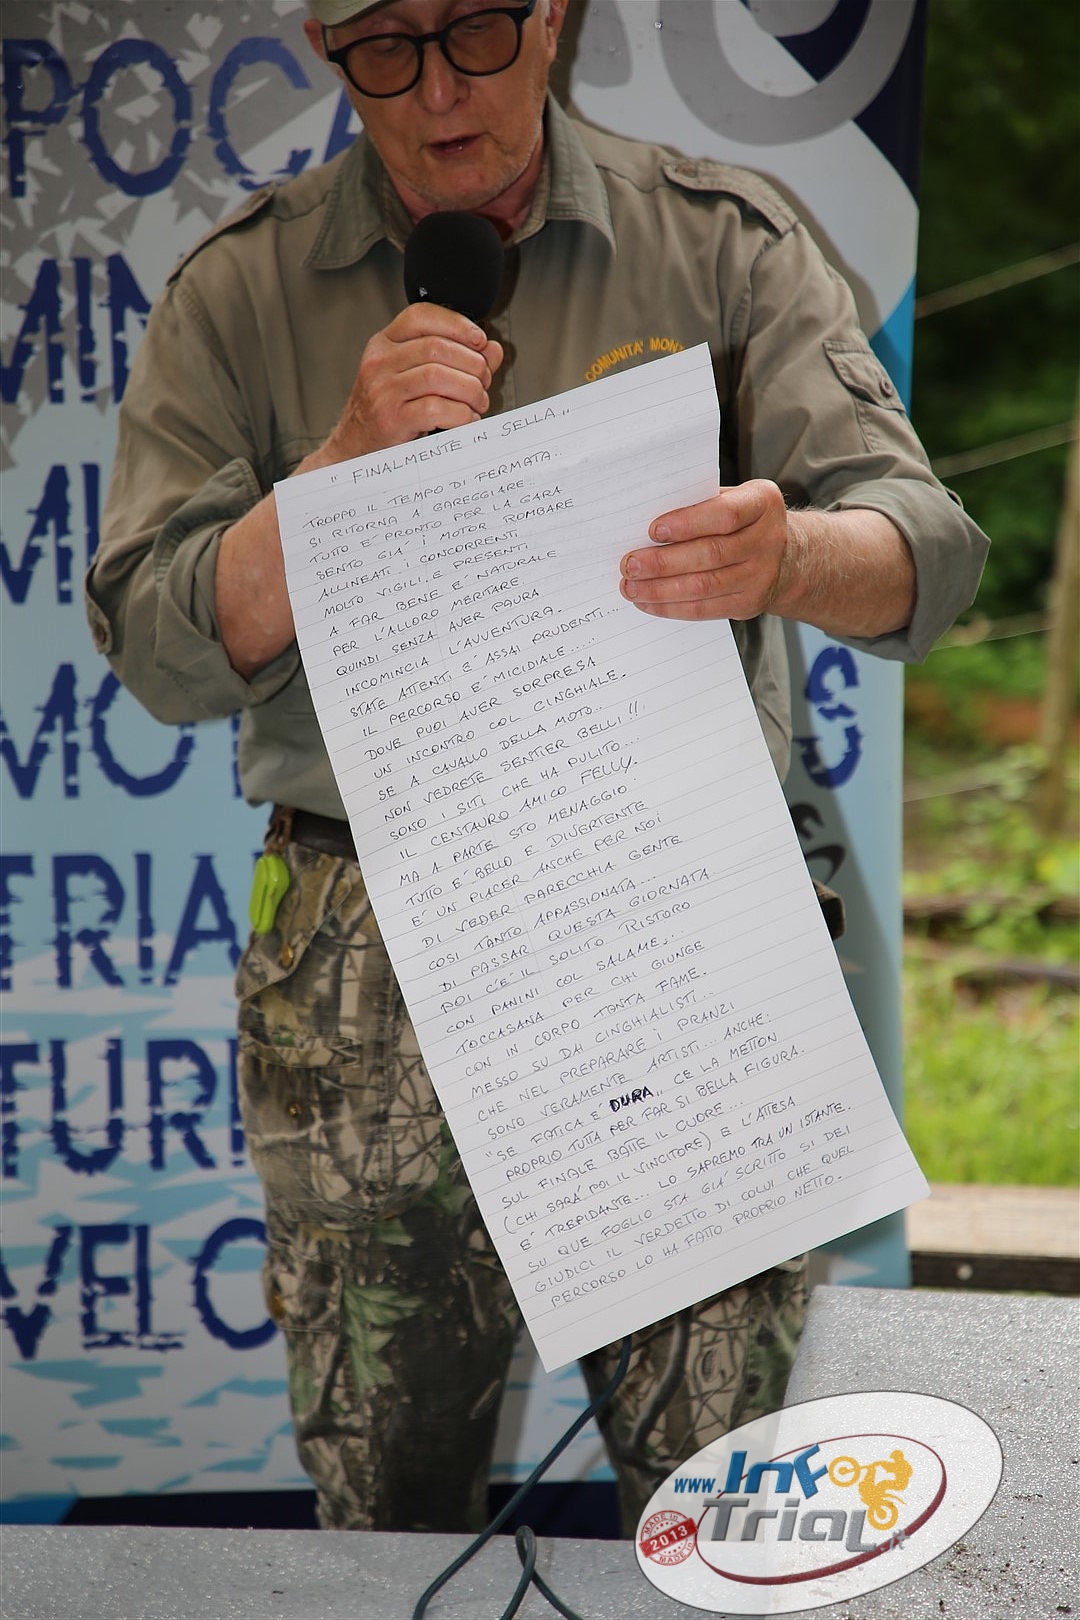 POCA
MIN
MI
MOT
S
TRIA
TURI
VELO
COMUNITA' MONT
"FINALMENTE IN SELLA"
TROPPO IL TEMPO DI FERMATA..
SI RITORNA A GAREGGIARE..
TUTTO E' PRONTO PER LA GARA
SENTO GIA' I MOTOR ROMBARE
ALLINEATI I CONCORRENTI
MOLTO VIGILI, E PRESENTI
A FAR BENE E' NATURALE
PER L'ALLORO MERITARE.
QUINDI SENZA AVER PAURA
INCOMINCIA L'AVVENTURA.
STATE ATTENTI E' ASSAI PRUDENTI...
IL PERCORSO E' MICIDIALE....
DOVE PUOI AVER SORPRESA
UN INCONTRO COL CINGHIALE.
SE A CAVALLO DELLA MOTO..
NON VEDRETE SENTIER BELLI!!
SONO I SITI CHE HA PULITO...
IL CENTAURO AMICO FELLY.
MA A PARTE STO MENAGGIO
TUTTO E' BELLO E DIVERTENTE
E' UN PIACER ANCHE PER NOI
DI VEDER PARECCHIA GENTE
COSI TANTO APPASSIONATA...
DI PASSAR QUESTA GIORNATA.
POI C'E' IL SOLITO RISTORO
CON PANINI COL SALAME,..
TOCCASANA PER CHI GIUNGE
CON IN CORPO TANTA FAME.
MESSO SU DAI CINGHIALISTI...
CHE NEL PREPARARE I PRANZI
SONO VERAMENTE ARTISTI... ANCHE:
"SE FATICA E' DURA" CE LA METTON
PROPRIO TUTTA PER FAR SI BELLA FIGURA.
SUL FINALE BATTE IL CUORE...
(CHI SARA' POI IL VINCITORE) E L'ATTESA
E' TREPIDANTE... LO SAPREMO TRA UN ISTANTE.
SU QUE FOGLIO STA GIA' SCRITTO SI DEI
GIUDICI IL VERDETTO DI COLUI CHE QUEL
PERCORSO LO HA FATTO PROPRIO NETTO.
www.InFo
Trial.it
MADE IN
2013
MADE IN